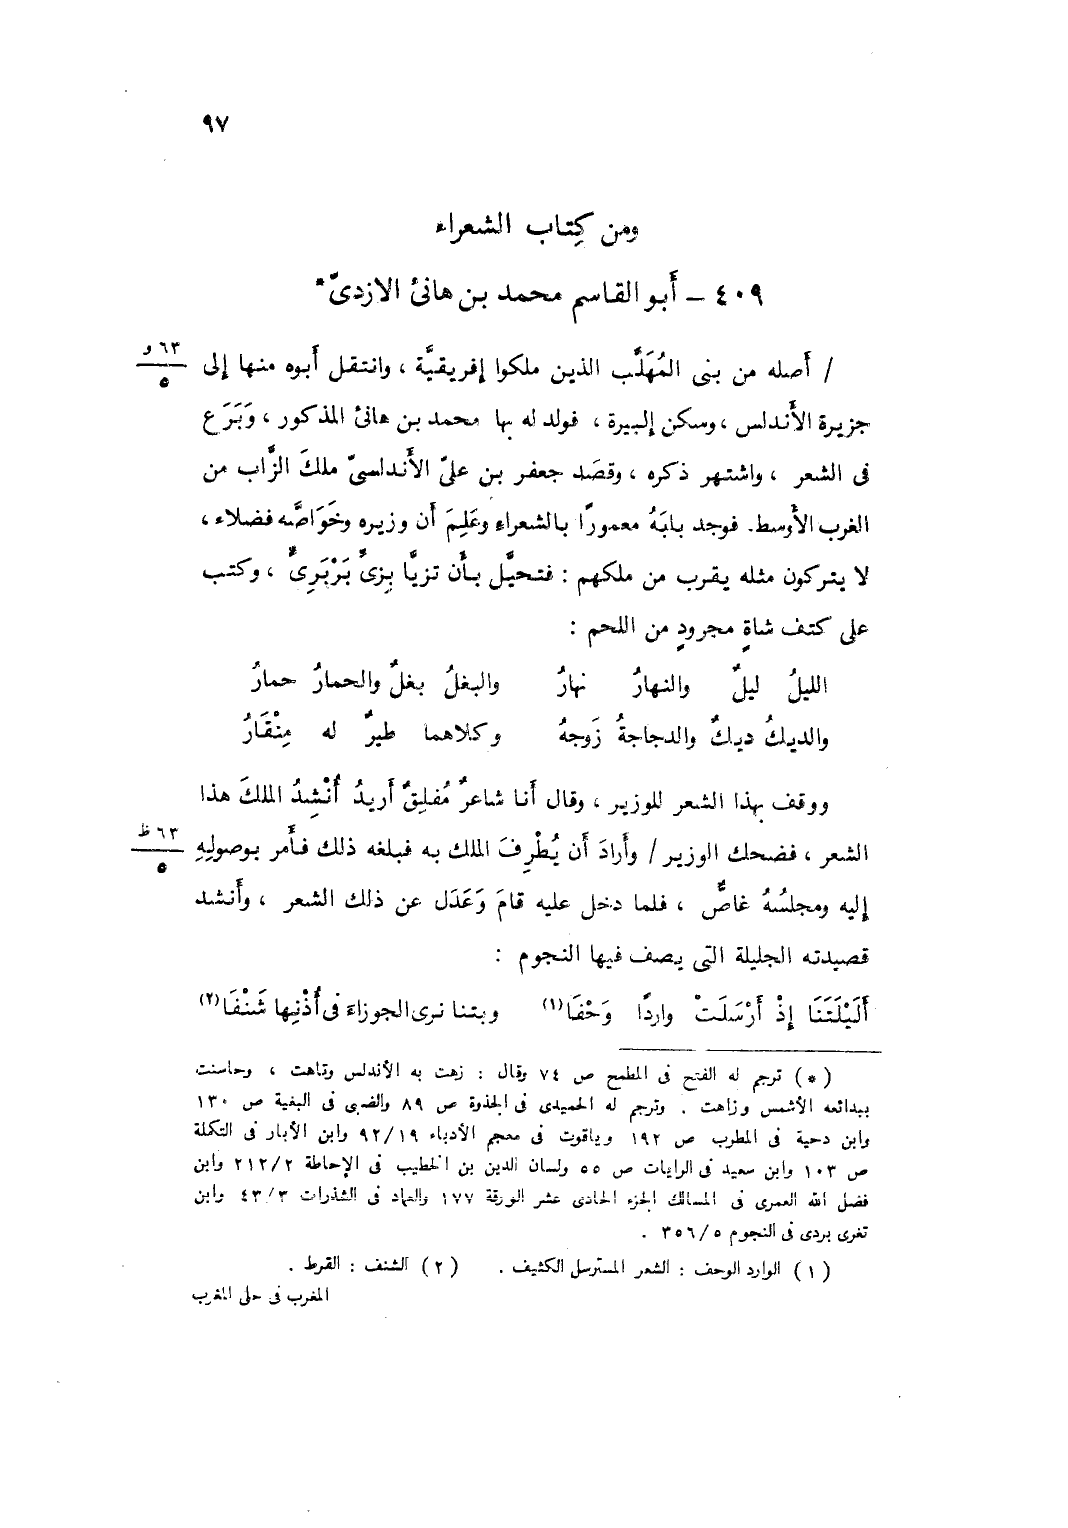 ٩٧
ومن كِتاب الشعراء
٤٠٩ – أَبو القاسم محمد بن هانئ الازدىّ*
/ أَصله من بنى المُهَلَّب الذين ملكوا إفريقيَّة ، وانتقل أَبوه منها إلى
٦٣ و
٥
جزيرة الأَندلس ، وسكن إلبيرة ، فولد له بها محمد بن هانئ المذكور ، وَبَرَع
فى الشعر ، واشتهر ذكره ، وقصَد جعفر بن علىّ الأَندلسىّ ملكَ الزَّاب من
الغرب الأَوسط. فوجد بابَهُ معمورًا بالشعراءِ وعَلِمَ أَن وزيره وخَوَاصَّه فضلاء ،
لا يتركون مثله يقرب من ملكهم : فتحيَّل بأَن تزيَّا بِزىٍّ بَرْبَرِىٍّ ، وكتب
على كتف شاةٍ مجرودٍ من اللحم :
الليلُ ليلٌ والنهارُ نهارُ والبغلُ بغلٌ والحمارُ حمارُ
والديكُ ديكٌ والدجاجةُ زَوجهُ وكلاهما طيرٌ له مِنْقَارُ
ووقف بهذا الشعر للوزير ، وقال أَنا شاعرٌ مُفلِقٌ أَريدُ أُنْشِدُ الملكَ هذا
الشعر ، فضحك الوزير / وأَرادَ أَن يُطْرِفَ الملك به فبلغه ذلك فأَمر بوصولِهِ
٦٣ ظ
٥
إليه ومجلسُهُ غاصٌّ ، فلما دخل عليه قامَ وَعَدَل عن ذلك الشعر ، وأَنشد
قصيدته الجليلة التى يصف فيها النجوم :
أَلَيْلَتَنَا إذْ أَرْسَلَتْ واردًا وَحْفَا (١) وبتنا نرى الجوزاءَ فى أُذْنِها شَنْفَا (٢)
(*) ترجم له الفتح فى المطمح ص ٧٤ وقال : زهت به الأندلس وتاهت ، وحاسنت
ببدائعه الأشمس وزاهت . وترجم له الحميدى فى الجذوة ص ٨٩ والضبى فى البغية ص ١٣٠
وابن دحية فى المطرب ص ١٩٢ وياقوت فى معجم الأدباء ٩٢/١٩ وابن الأبار فى التكلة
ص ١٠٣ وابن سعيد فى الرايات ص ٥٥ ولسان الدين بن الخطيب فى الإحاطة ٢١٢/٢ وابن
فضل الله العمرى فى المسالك الجزء الحادى عشر الورقة ١٧٧ والعماد فى الشذرات ٤٣/٣ وابن
تغرى بردى فى النجوم ٣٥٦/٥ .
(١) الوارد الوحف : الشعر المسترسل الكثيف . (٢) الشنف : القرط .
المغرب فى حلى المغرب